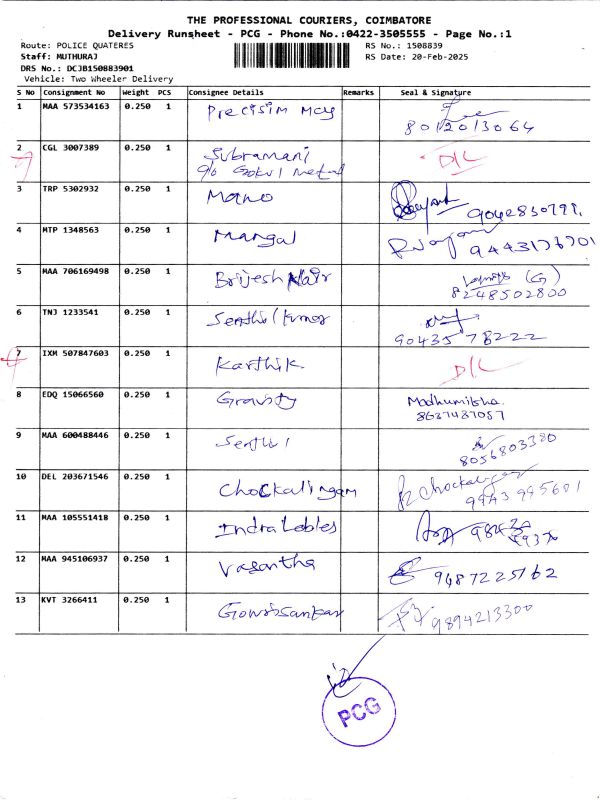 THE PROFESSIONAL COURIERS, COIMBATORE
Delivery Runsheet - PCG - Phone No.:0422-3505555 - Page No.:1
Route: POLICE QUATERES RS No.: 1508839
Staff: MUTHURAJ RS Date: 20-Feb-2025
DRS No.: DCJB150883901
Vehicle: Two Wheeler Delivery
S No Consignment No Weight PCS Consignee Details Remarks Seal & Signature
1 MAA 573534163 0.250 1 Precisim
8012013064
2 CGL 3007389 0.250 1 Subramani D/L
c/o Gokul Metal
3 TRP 5302932 0.250 1 Mano
4 MTP 1348563 0.250 1 Mangal
5 MAA 706169498 0.250 1 Brijesh Nair (G)
8248502800
6 TNJ 1233541 0.250 1 Senthil Kumar
9043578222
7 IXM 507847603 0.250 1 Karthik D/L
8 EDQ 15066560 0.250 1 Gravity Madhumitha.
8637487057
9 MAA 600488446 0.250 1 Senthil
8056803380
10 DEL 203671546 0.250 1 Chockalingam
9943995681
11 MAA 105551418 0.250 1 Indra Lables
12 MAA 945106937 0.250 1 Vasantha 9487225162
13 KVT 3266411 0.250 1 Gowrisankar 9894213300
PCG